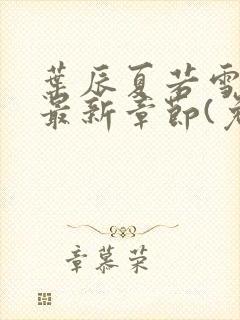 葉辰夏若雪
最新章節(
章慕荣